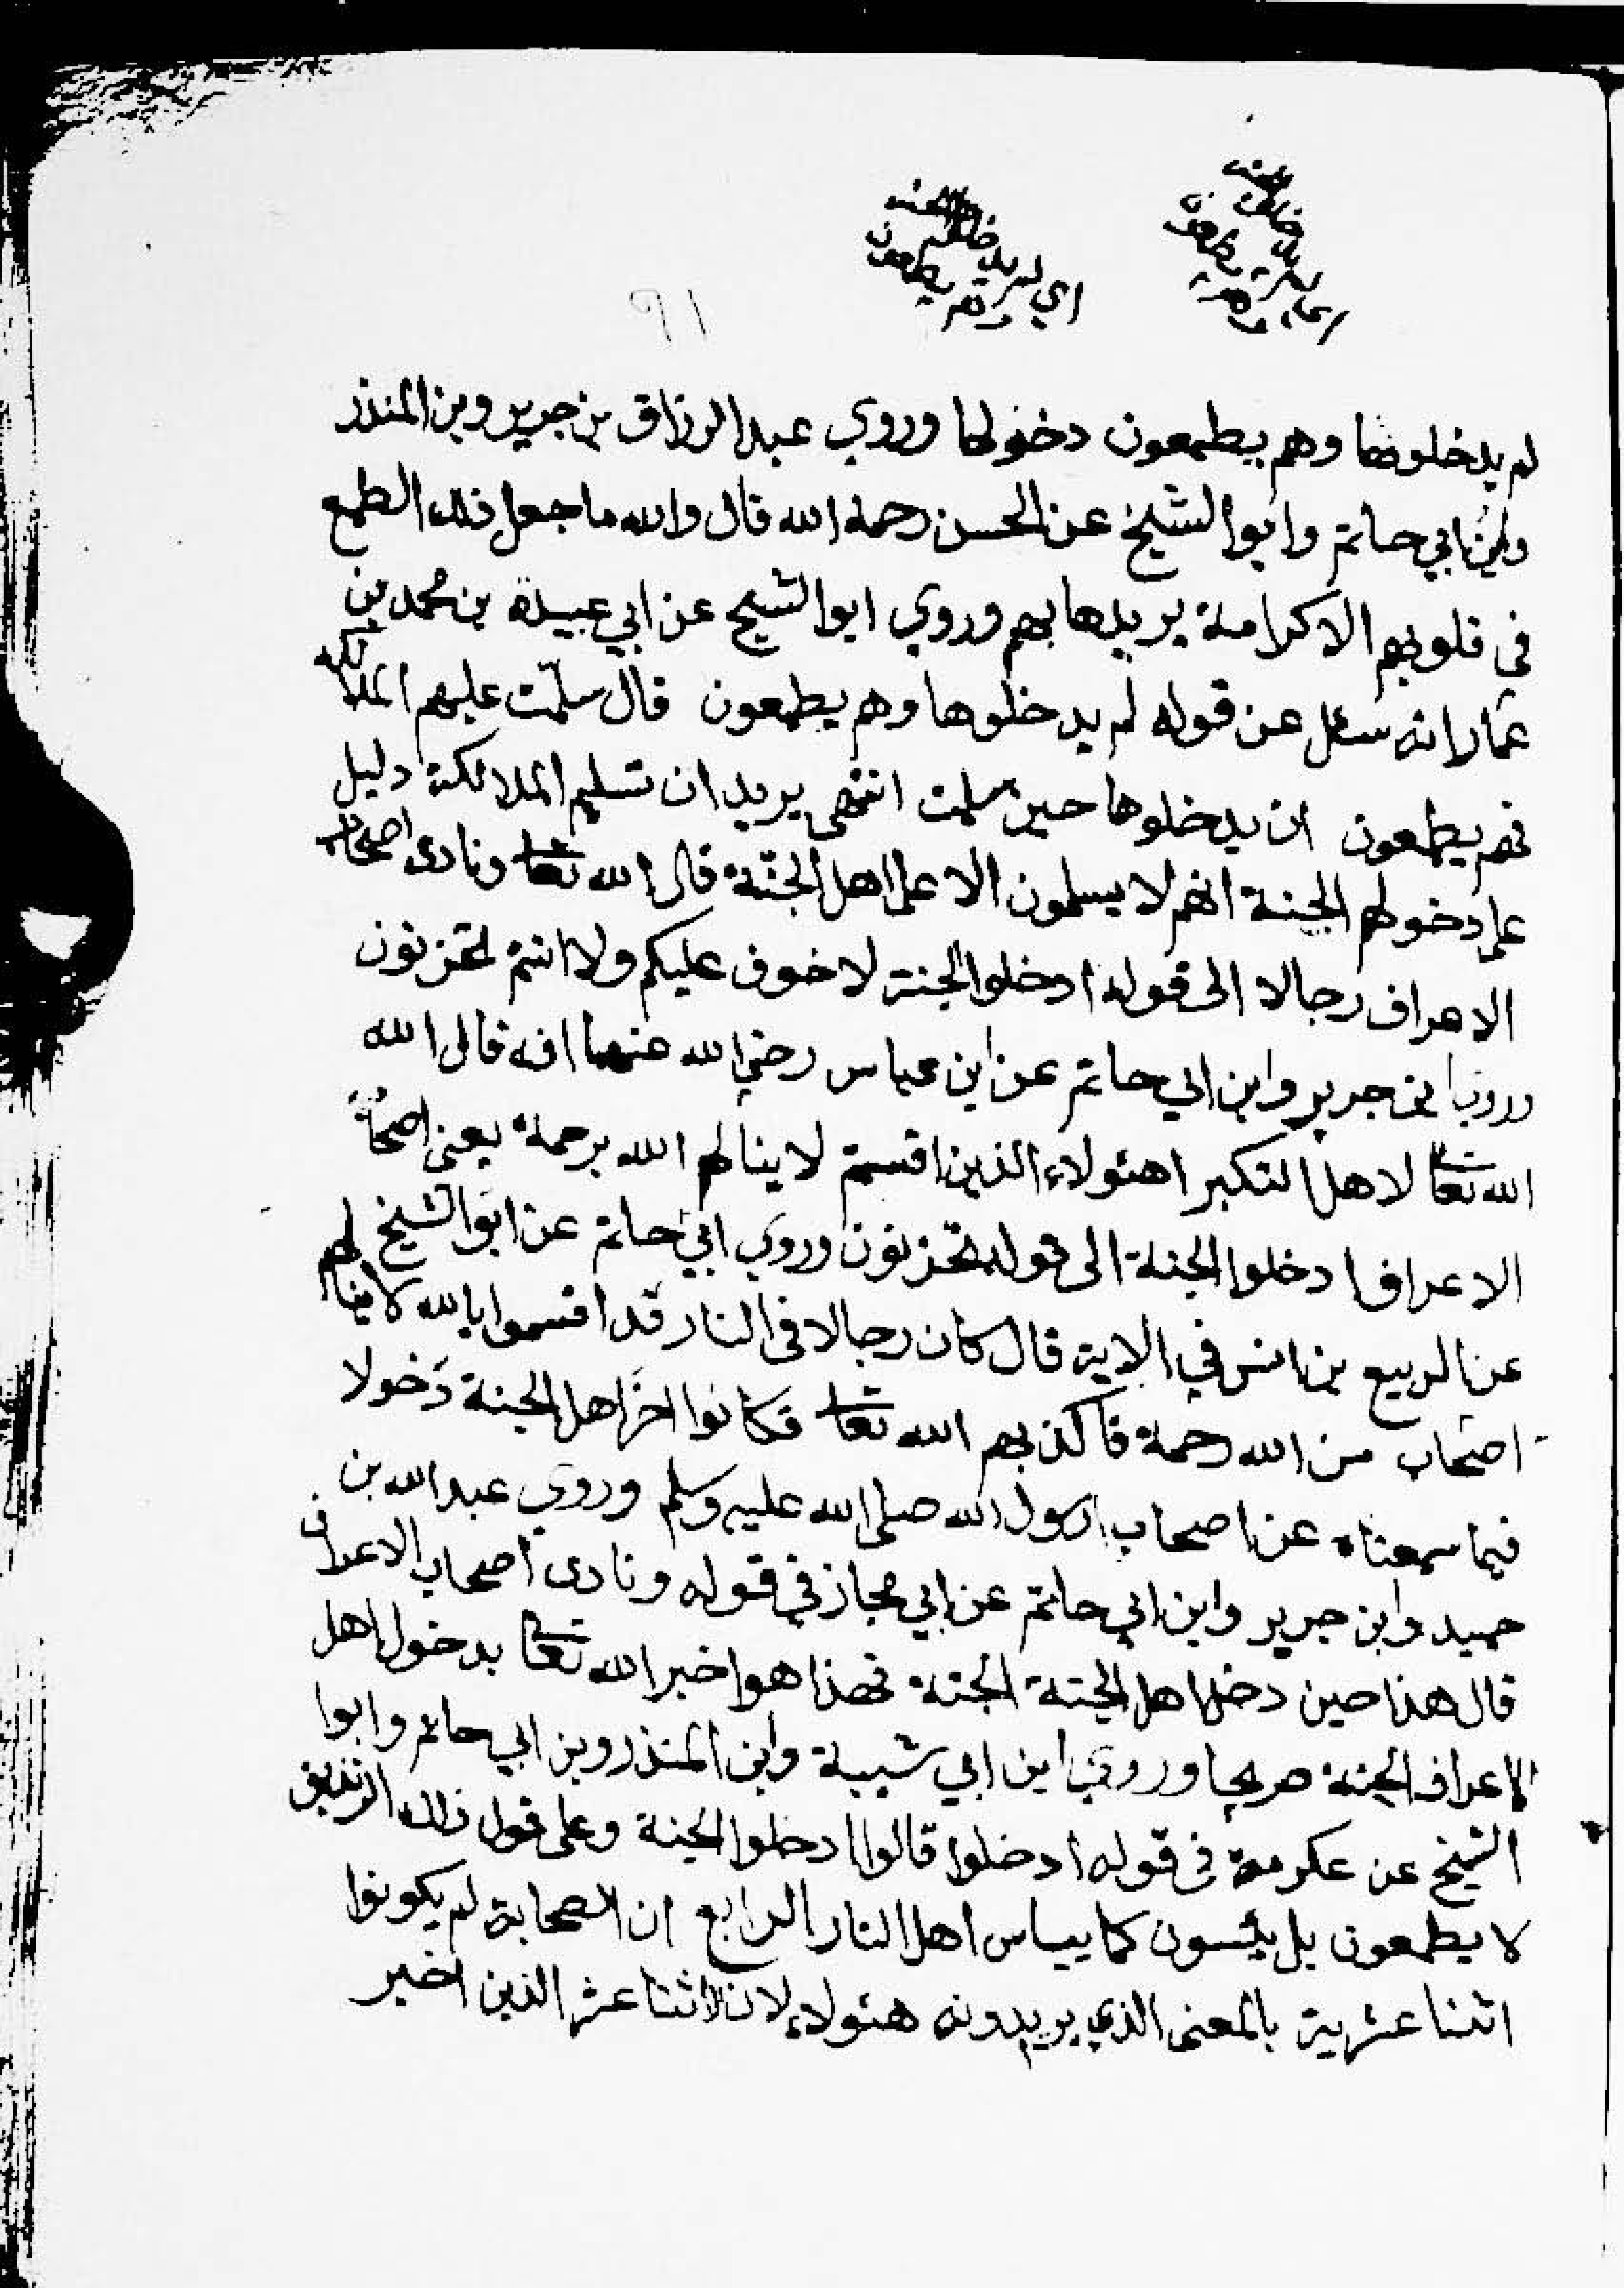 اي لم يدخلوا
وهم يطمعون
٩١
لم يدخلوها وهم يطمعون دخولها وروي عبد الرزاق بن جرير وبن المنذر
وابن ابي حاتم وابوا الشيخ عن الحسن رحمة الله قال والله ما جعل ذلك الطمع
في قلوبهم الا كرامة يريدها بهم وروي ابوا الشيخ عن ابي عبيدة بن محمد بن
عمار انه سئل عن قوله لم يدخلوها وهم يطمعون قال سلمت عليهم الملائكة
فهم يطمعون ان يدخلوها حين سلمت انتهى يريد ان تسليم الملائكة دليل
على دخولهم الجنة انهم لا يسلمون الا على اهل الجنة قال الله تعا ونادى اصحاب
الاعراف رجالا الى قوله ادخلوا الجنة لا خوف عليكم ولا انتم تحزنون
وروي ابن جرير وابن ابي حاتم عن ابن عباس رضي الله عنهما انه قال الله
الله تعا لاهل التكبر اهئولاء الذين اقسمتم لا ينالهم الله برحمة يعنى اصحاب
الاعراف ادخلوا الجنة الى قوله تحزنون وروي ابي حاتم عن ابوا الشيخ
عن الربيع بن انس في الاية قال كان رجالا في النار قد اقسموا بالله لا ينالهم
اصحاب من الله رحمة فاكذبهم الله تعا فكانوا اخر اهل الجنة دخولا
فيما سمعناه عن اصحاب رسول الله صلى الله عليه وسلم وروي عبد الله بن
حميد وابن جرير وابن ابي حاتم عن ابي مجاز في قوله ونادى اصحاب الاعراف
قال هذا حين دخل اهل الجنة الجنة فهذا هوا خبر الله تعا بدخول اهل
الاعراف الجنة صريحا وروي ابن ابي شيبة وابن المنذر وبن ابي حاتم وابوا
الشيخ عن عكرمة في قوله ادخلوا قالوا ادخلوا الجنة وعلى قول ذلك الزنديق
لا يطمعون بل يئسون كما ييأس اهل النار الرابع ان الصحابة لم يكونوا
اثنا عشرية بالمعنى الذي يريدونه هئولاء لان الاثنا عشر الذين اخبر